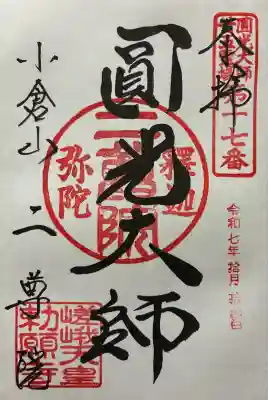 圓光大師
第十七番
奉拝
圓光大師
釋迦
二尊院
弥陀
令和七年 拾月
小倉山 二尊院
嵯峨天皇
勅願寺